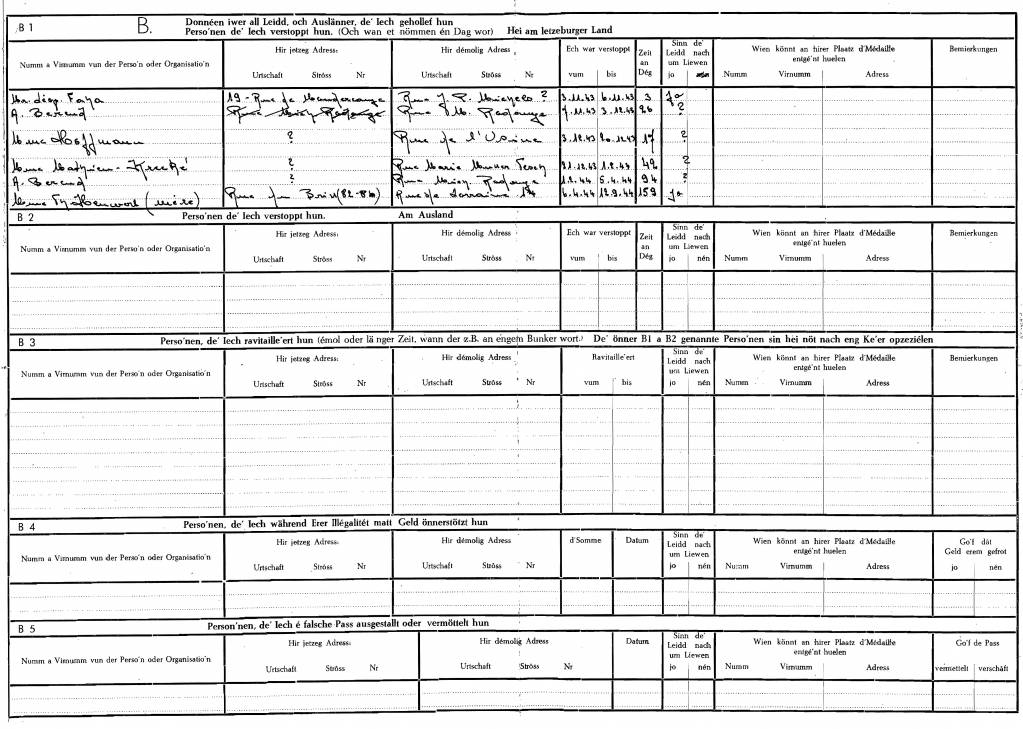 B 1 B. Donnéen iwer all Leidd, och Auslänner, de' Iech gehollef hun
Perso'nen de' Iech verstoppt hun. (Och wan et nömmen én Dag wor) Hei am letzeburger Land
Numm a Virnumm vun der Perso'n oder Organisatio'n
Hir jetzeg Adress:
Urtschaft Ströss Nr
Hir démolig Adress
Urtschaft Ströss Nr
Ech war verstoppt
vum bis
Zeit an Dég
Sinn de' Leidd nach um Liewen
jo nén
Wien könnt an hirer Plaatz d'Médaille entgé'nt huelen
Numm Virnumm Adress
Bemierkungen
19 - Rue de Rue J. P. ? 3.11.43 6.11.43 3 Jo
A. Rue 7.11.43 3.12.43 26 ?
Mme Hoffmann ? Rue de l'Usine 3.12.43 20.12.43 17 ?
Mme ? Rue Marie 21.12.43 1.2.44 42 ?
A. ? Rue 1.2.44 5.4.44 94 ?
Mme (mère) Rue (82-86) Rue de Lorraine 6.4.44 12.9.44 159 Jo
B 2 Perso'nen de' Iech verstoppt hun. Am Ausland
Numm a Virnumm vun der Perso'n oder Organisatio'n
Hir jetzeg Adress:
Urtschaft Ströss Nr
Hir démolig Adress
Urtschaft Ströss Nr
Ech war verstoppt
vum bis
Zeit an Dég
Sinn de' Leidd nach um Liewen
jo nén
Wien könnt an hirer Plaatz d'Médaille entgé'nt huelen
Numm Virnumm Adress
Bemierkungen
B 3 Perso'nen, de' Iech ravitaille'ert hun (émol oder länger Zeit, wann der z.B. an engem Bunker wort.) De' önner B1 a B2 genannte Perso'nen sin hei nöt nach eng Ke'er opzeziélen
Numm a Virnumm vun der Perso'n oder Organisatio'n
Hir jetzeg Adress:
Urtschaft Ströss Nr
Hir démolig Adress
Urtschaft Ströss Nr
Ravitaille'ert
vum bis
Sinn de' Leidd nach um Liewen
jo nén
Wien könnt an hirer Plaatz d'Médaille entgé'nt huelen
Numm Virnumm Adress
Bemierkungen
B 4 Perso'nen, de' Iech während Erer Illégalitét matt Geld önnerstötzt hun
Numm a Virnumm vun der Perso'n oder Organisatio'n
Hir jetzeg Adress:
Urtschaft Ströss Nr
Hir démolig Adress
Urtschaft Ströss Nr
d'Somme
Datum
Sinn de' Leidd nach um Liewen
jo nén
Wien könnt an hirer Plaatz d'Médaille entgé'nt huelen
Numm Virnumm Adress
Go'f dát Geld erem gefrot
jo nén
B 5 Person'nen, de' Iech é falsche Pass ausgestallt oder vermöttelt hun
Numm a Virnumm vun der Perso'n oder Organisatio'n
Hir jetzeg Adress:
Urtschaft Ströss Nr
Hir démolig Adress
Urtschaft Ströss Nr
Datum
Sinn de' Leidd nach um Liewen
jo nén
Wien könnt an hirer Plaatz d'Médaille entgé'nt huelen
Numm Virnumm Adress
Go'f de Pass
vermettelt verschäft